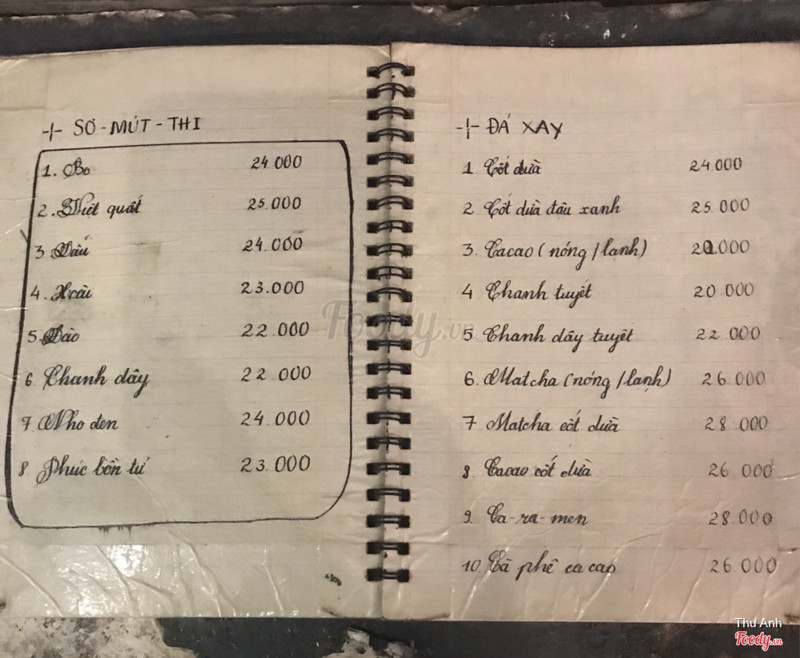 + SƠ - MÚT - THI
1. Bơ 24 000
2. Việt quất 25.000
3 Dâu 24.000
4. Xoài 23.000
5. Đào 22.000
6 Chanh dây 22 000
7 Nho đen 24.000
8 Phúc bồn tử 23.000
+ ĐÁ XAY
1 Cốt dừa 24.000
2 Cốt dừa đậu xanh 25 000
3. Cacao (nóng / lạnh)
4 Chanh tuyết 20 000
5 Chanh dây tuyết 22 000
6. Matcha (nóng / lạnh) 26 000
7 Matcha cốt dừa 28 000
8 Cacao cốt dừa 26 000
9. Ca-ra-men 28 000
10. Cà phê ca cao 26 000
Foody.vn
Thu Anh
Foody.vn